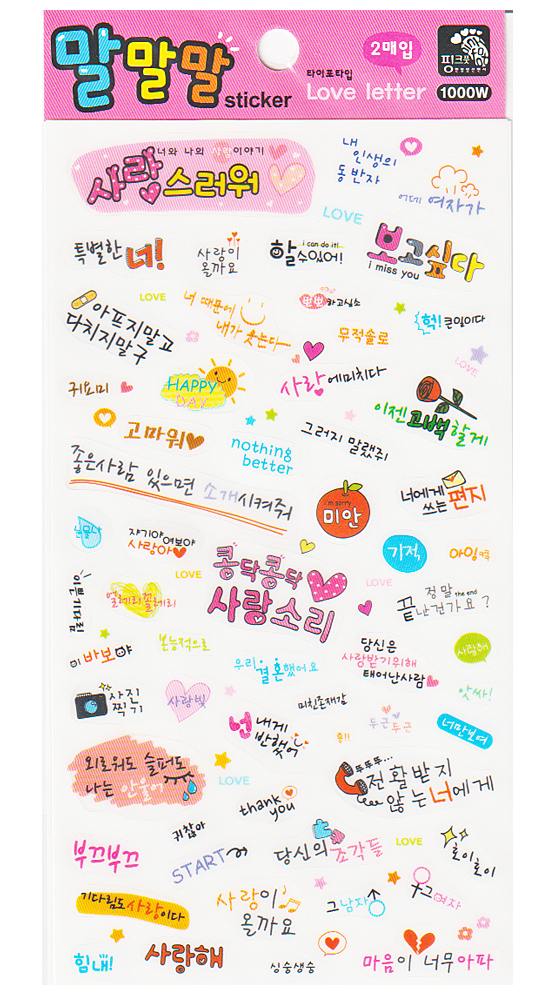 말말말
sticker
2매입
타이포타입
Love letter
핑크풋
1000W
너와 나의 사랑이야기
사랑스러워
내
인생의
동반자
어데 여자가
LOVE
특별한 네!
사랑이
올까요
i can do it!
할수있어!
보고싶다
i miss you
아프지말고
다치지말구
LOVE
너 때문에
내가 웃는다
뽀뽀하고싶소
무적솔로
헉! 큰일이다
LOVE
귀요미
HAPPY
DAY
사랑에미치다
이젠고백할게
고마워
nothing
better
그러지 말랬쥐
좋은사람 있으면 소개시켜줘
i'm sorry
미안
너에게
쓰는편지
눈물나
자기야여보야
사랑아
콩닥콩닥
사랑소리
기적
아잉
이쁜기다림
얼레리꼴레리
LOVE
LOVE
정말 the end
끝난건가요?
이바보야
본능적으로
우리 결혼했어요
당신은
사랑받기위해
태어난사람
사랑해
사진
찍기
사랑빛
넌 내게
반했어
미친존재감
두근두근
앗싸!
너만보여
외로워도 슬퍼도
나는 안울어
LOVE
thank
you
뚜뚜뚜...
전활받지
않는너에게
부끄부끄
귀찮아
START
당신의조각들
LOVE
호이호이
기다림도사랑이다
사랑이
올까요
그남자
그여자
힘내!
사랑해
싱숭생숭
마음이 너무아파